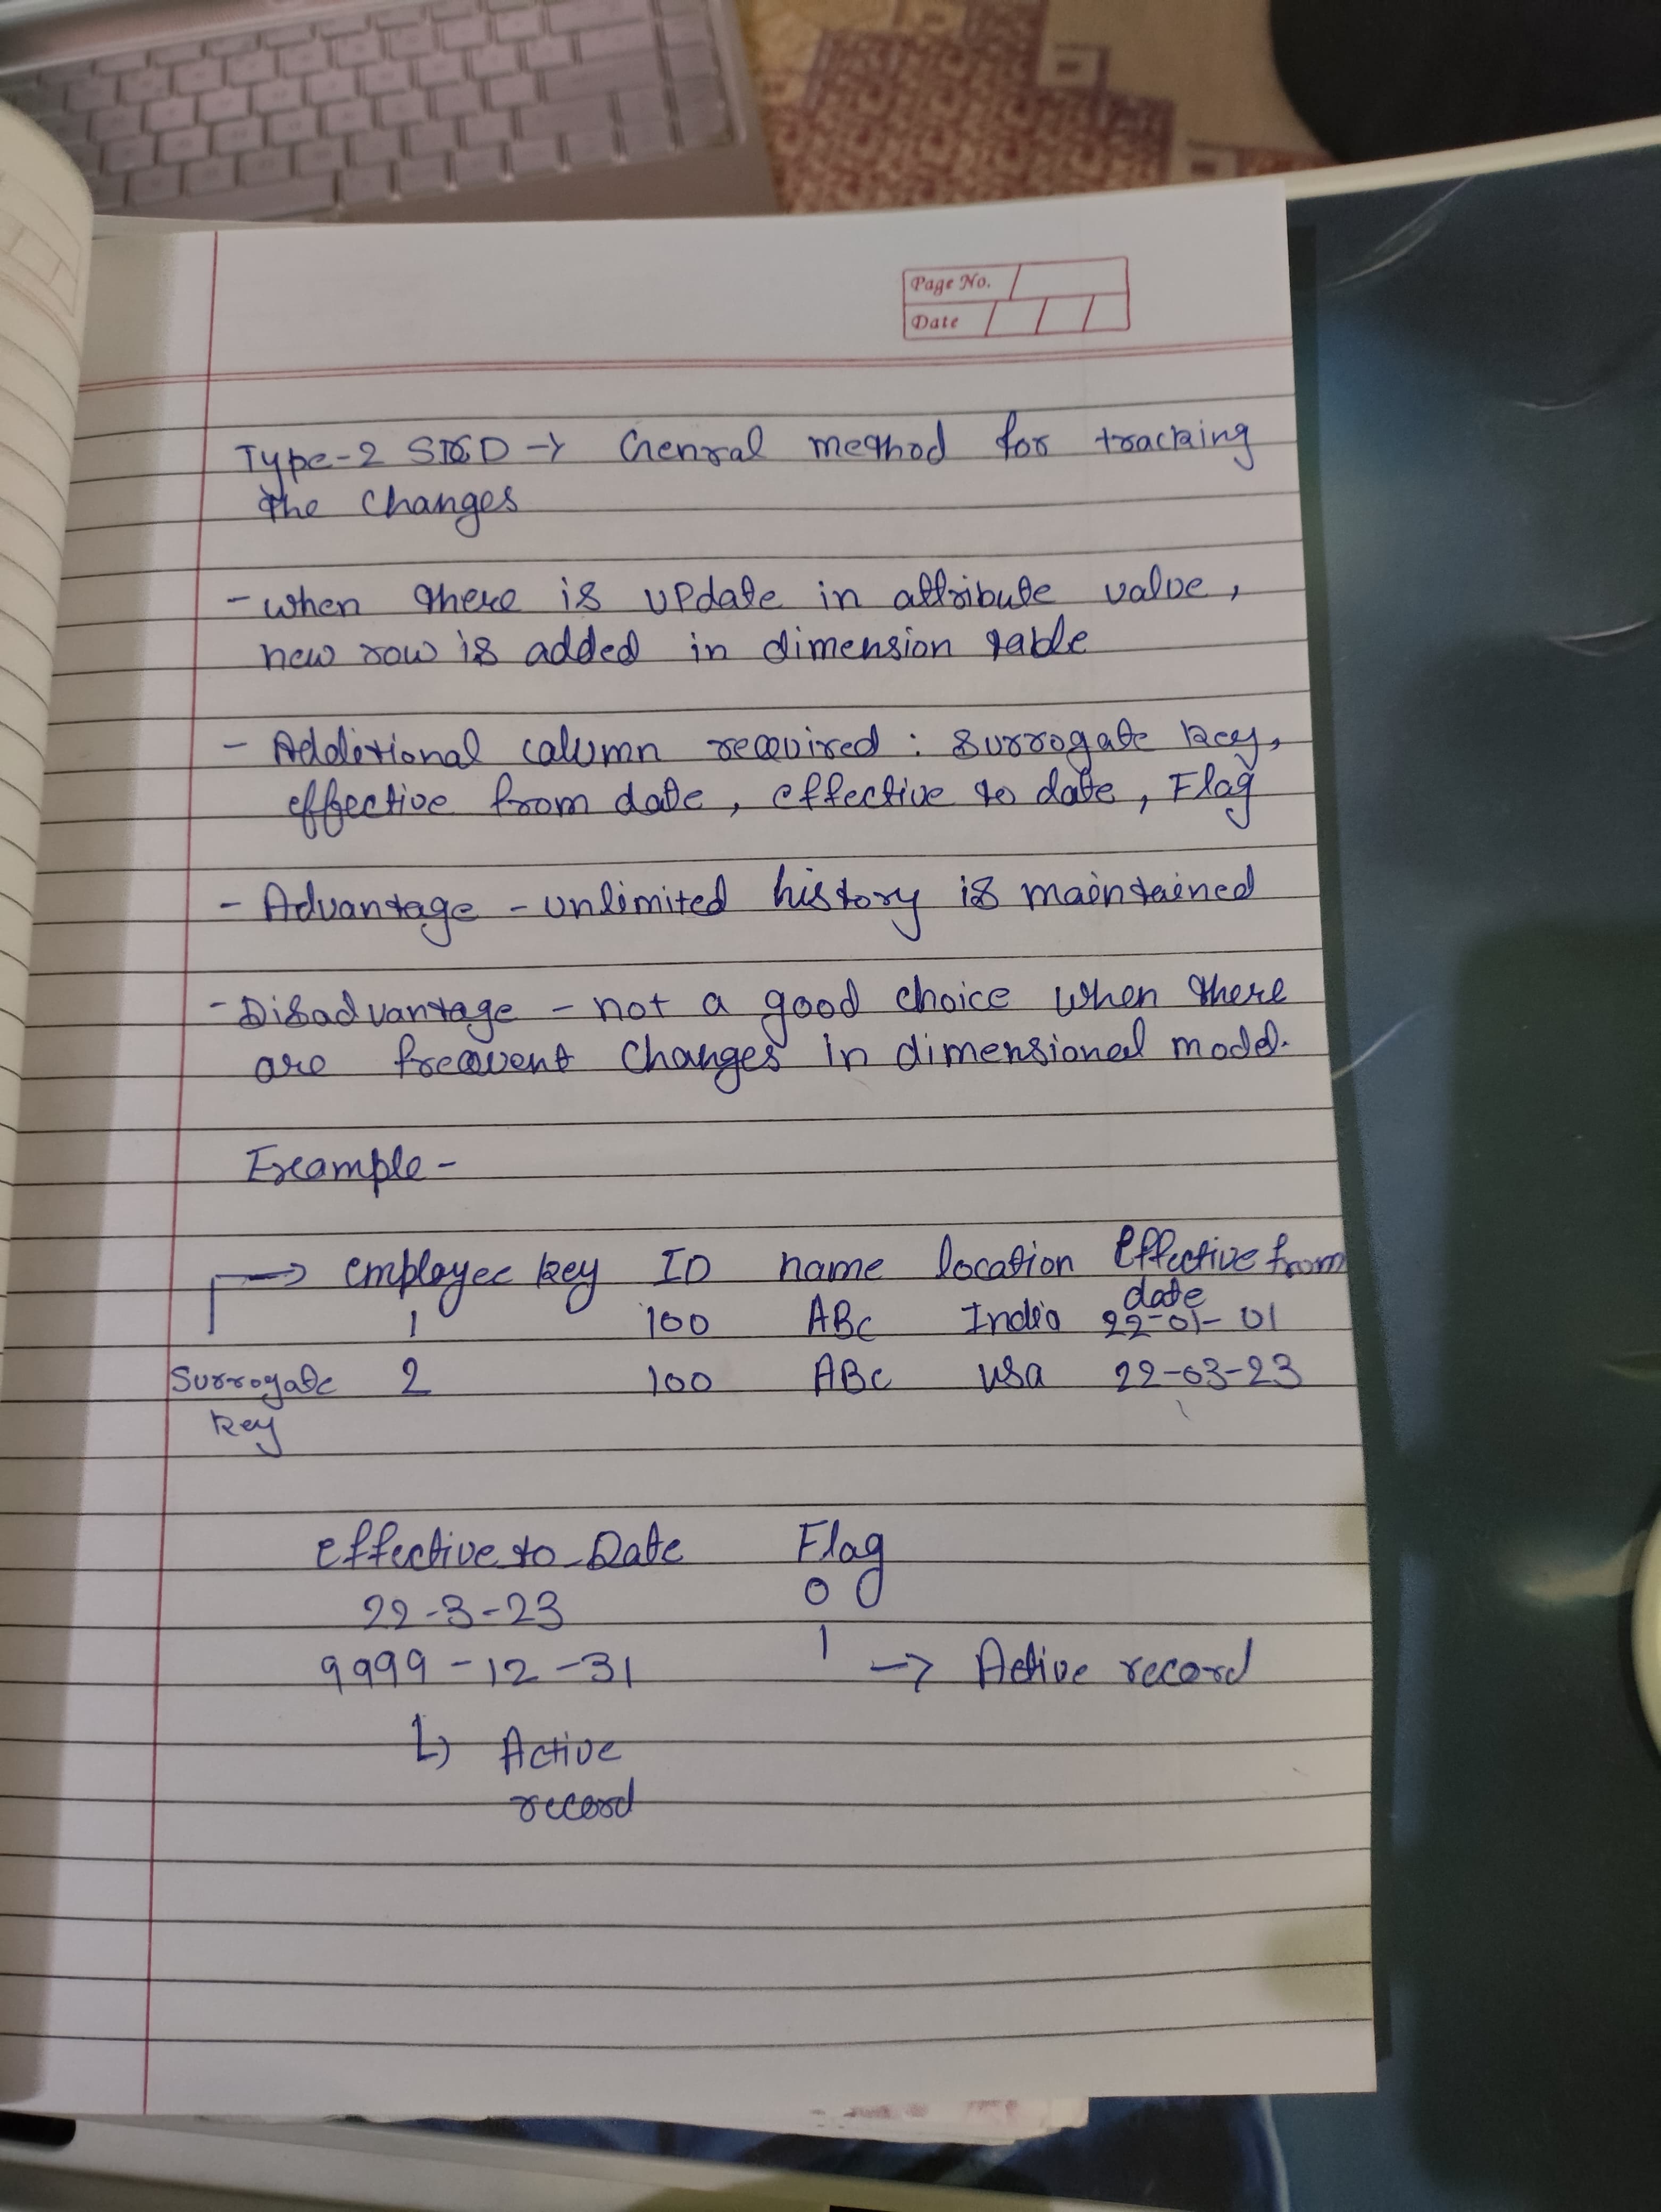 Page No.
Date
Type-2 SCD → Genral method for tracking
the changes
- when there is update in attribute value,
new row is added in dimension table
- Additional calumn required : surrogate key,
effective from date, effective to date, Flag
- Advantage - unlimited history is maintained
- Disadvantage - not a good choice when there
are frequent changes in dimensional model.
Example -
→ employee key ID name location Effective from
date
1 100 ABC India 22-01-01
Surrogate 2 100 ABC USA 22-03-23
key
effective to_Date Flag
22-3-23 0
9999-12-31 1 → Active record
↳ Active
record